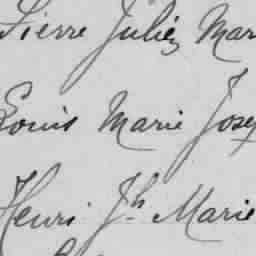 Pierre Julien Mar
Louis Marie Josep
Henri Jh Marie